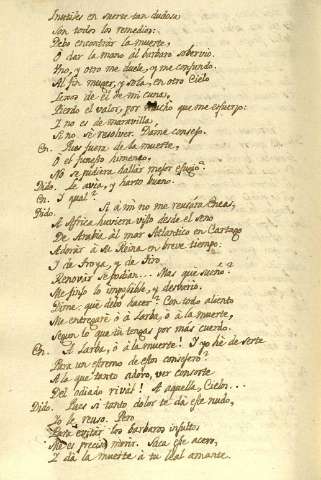 Inutiles en suerte tan dudosa
Son todos los remedios:
Debo encontrar la muerte,
O dar la mano al barbaro sobervio.
Uno, y otro me duele, y me confundo.
Al fin muger, y sola, en otro Cielo
Lexos de èl de mi cuna,
Pierdo el valor, por mucho que me esfuerzo:
I no es de maravilla,
Si no sè resolver. Dame consejo.
En. Pues fuera de la muerte,
O el funesto himeneo,
No se pudiera hallar mejor efugio?
Dido. Le avia, y harto bueno.
En. I qual?
Dido. Si à mi no me reusara Eneas,
A Africa huviera visto desde el seno
De Arabia al mar Atlantico en Cartago
Adorar à su Reina en breve tiempo:
I de Troya, y de Tiro
Renovar se podian... Mas que sueño?
Me finjo lo imposible, y desvario.
Dime: què debo hacer? Con todo aliento
Me entregarè ò à Iarba, ò à la muerte,
Segun lo que tù tengas por mas cuerdo.
En. A Iarba, ò à la muerte! I yo hè de serte
Para un estremo de estos consejero?
A la que tanto adoro, ver consorte
Del odiado rival! A aquella, Cielos...
Dido. Pues si tanto dolor te dà este nudo,
Yo le reuso. Pero
Para evitar los barbaros insultos
Me es preciso morir. Saca ese acero,
I dà la muerte à tu leal amante.